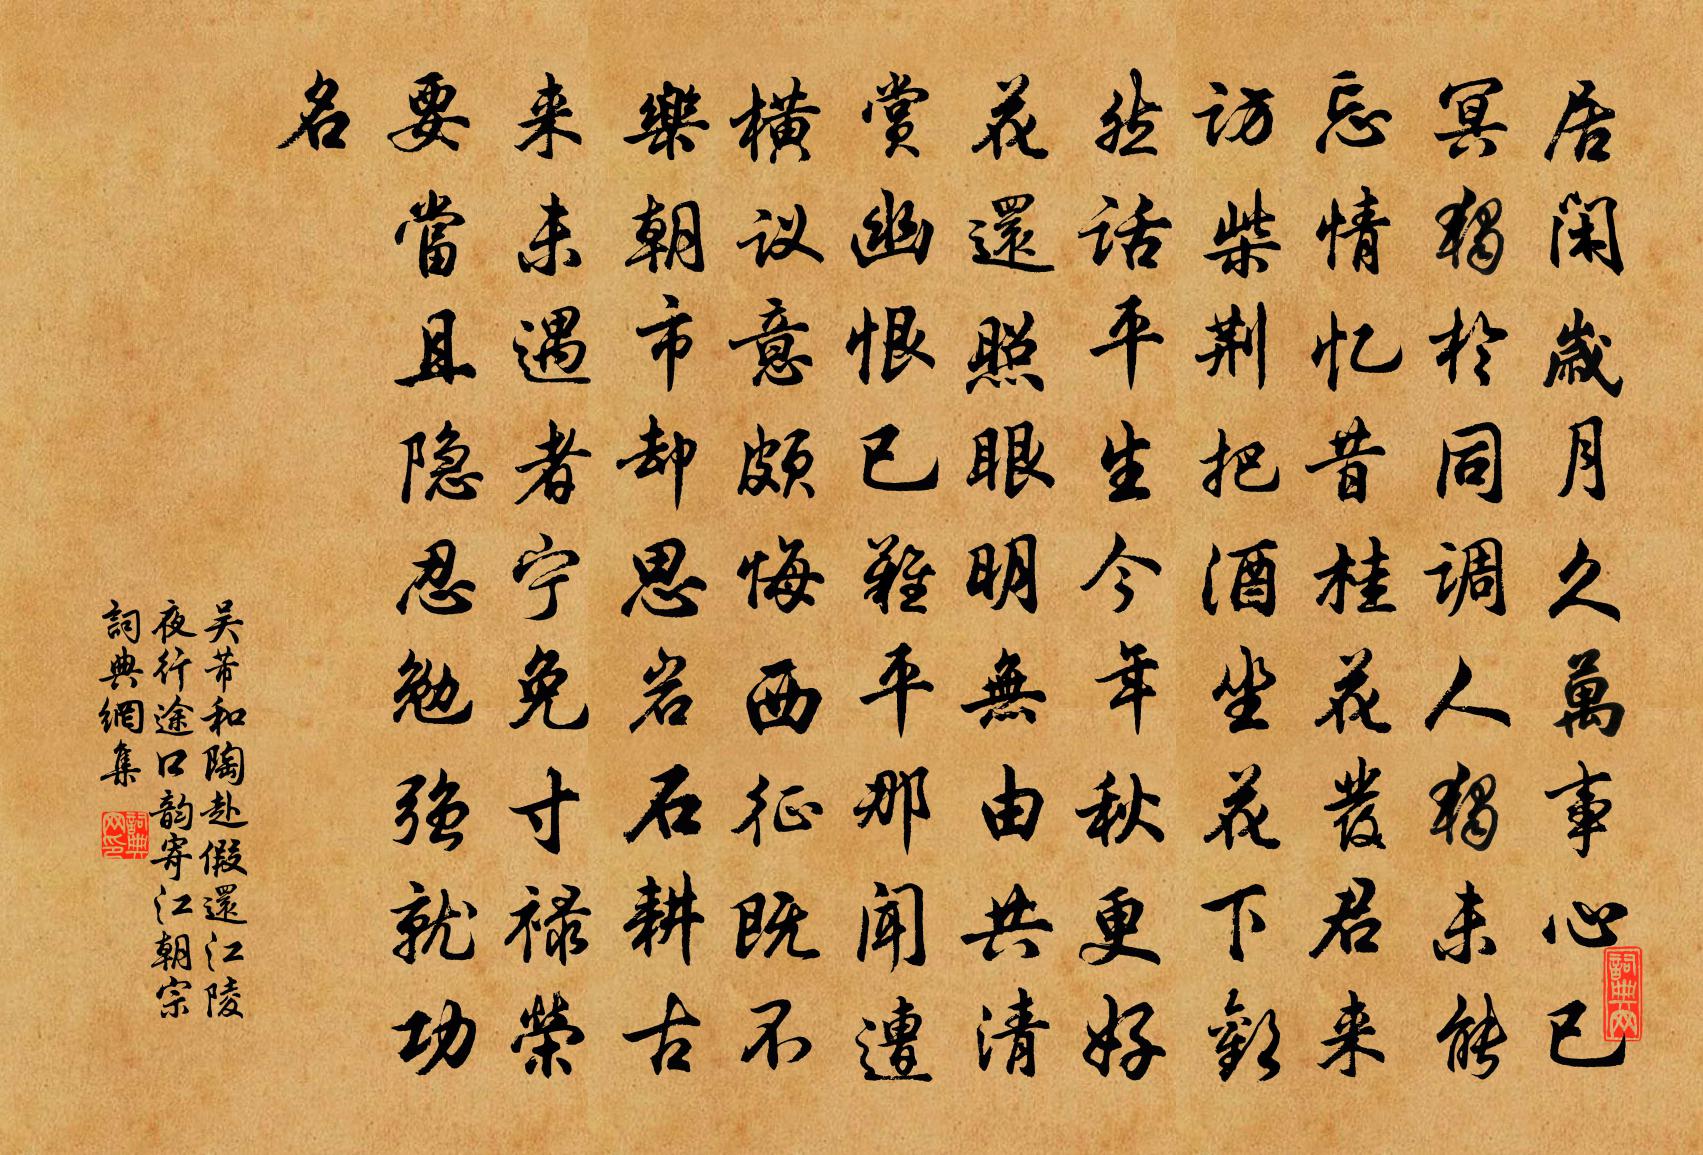 居闲歲月久萬事心已
冥獨於同調人獨未能
忘情忆昔桂花發君来
访柴荆把酒坐花下歡
然话平生今年秋更好
花還照眼明無由共清
赏幽恨已難平那闻遭
横议意颇悔西征既不
樂朝市却思岩石耕古
来未遇者宁免寸禄榮
要當且隐忍勉强就功
名
吴芾和陶赴假還江陵
夜行途口韵寄江朝宗
詞典網集
詞典网
詞典网印